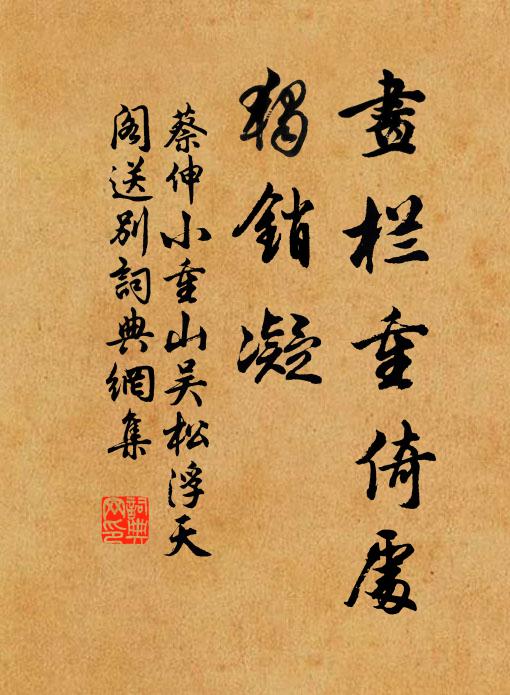 畫栏重倚處
獨銷凝
蔡伸小重山吴松浮天
阁送别詞典網集
詞典
网印